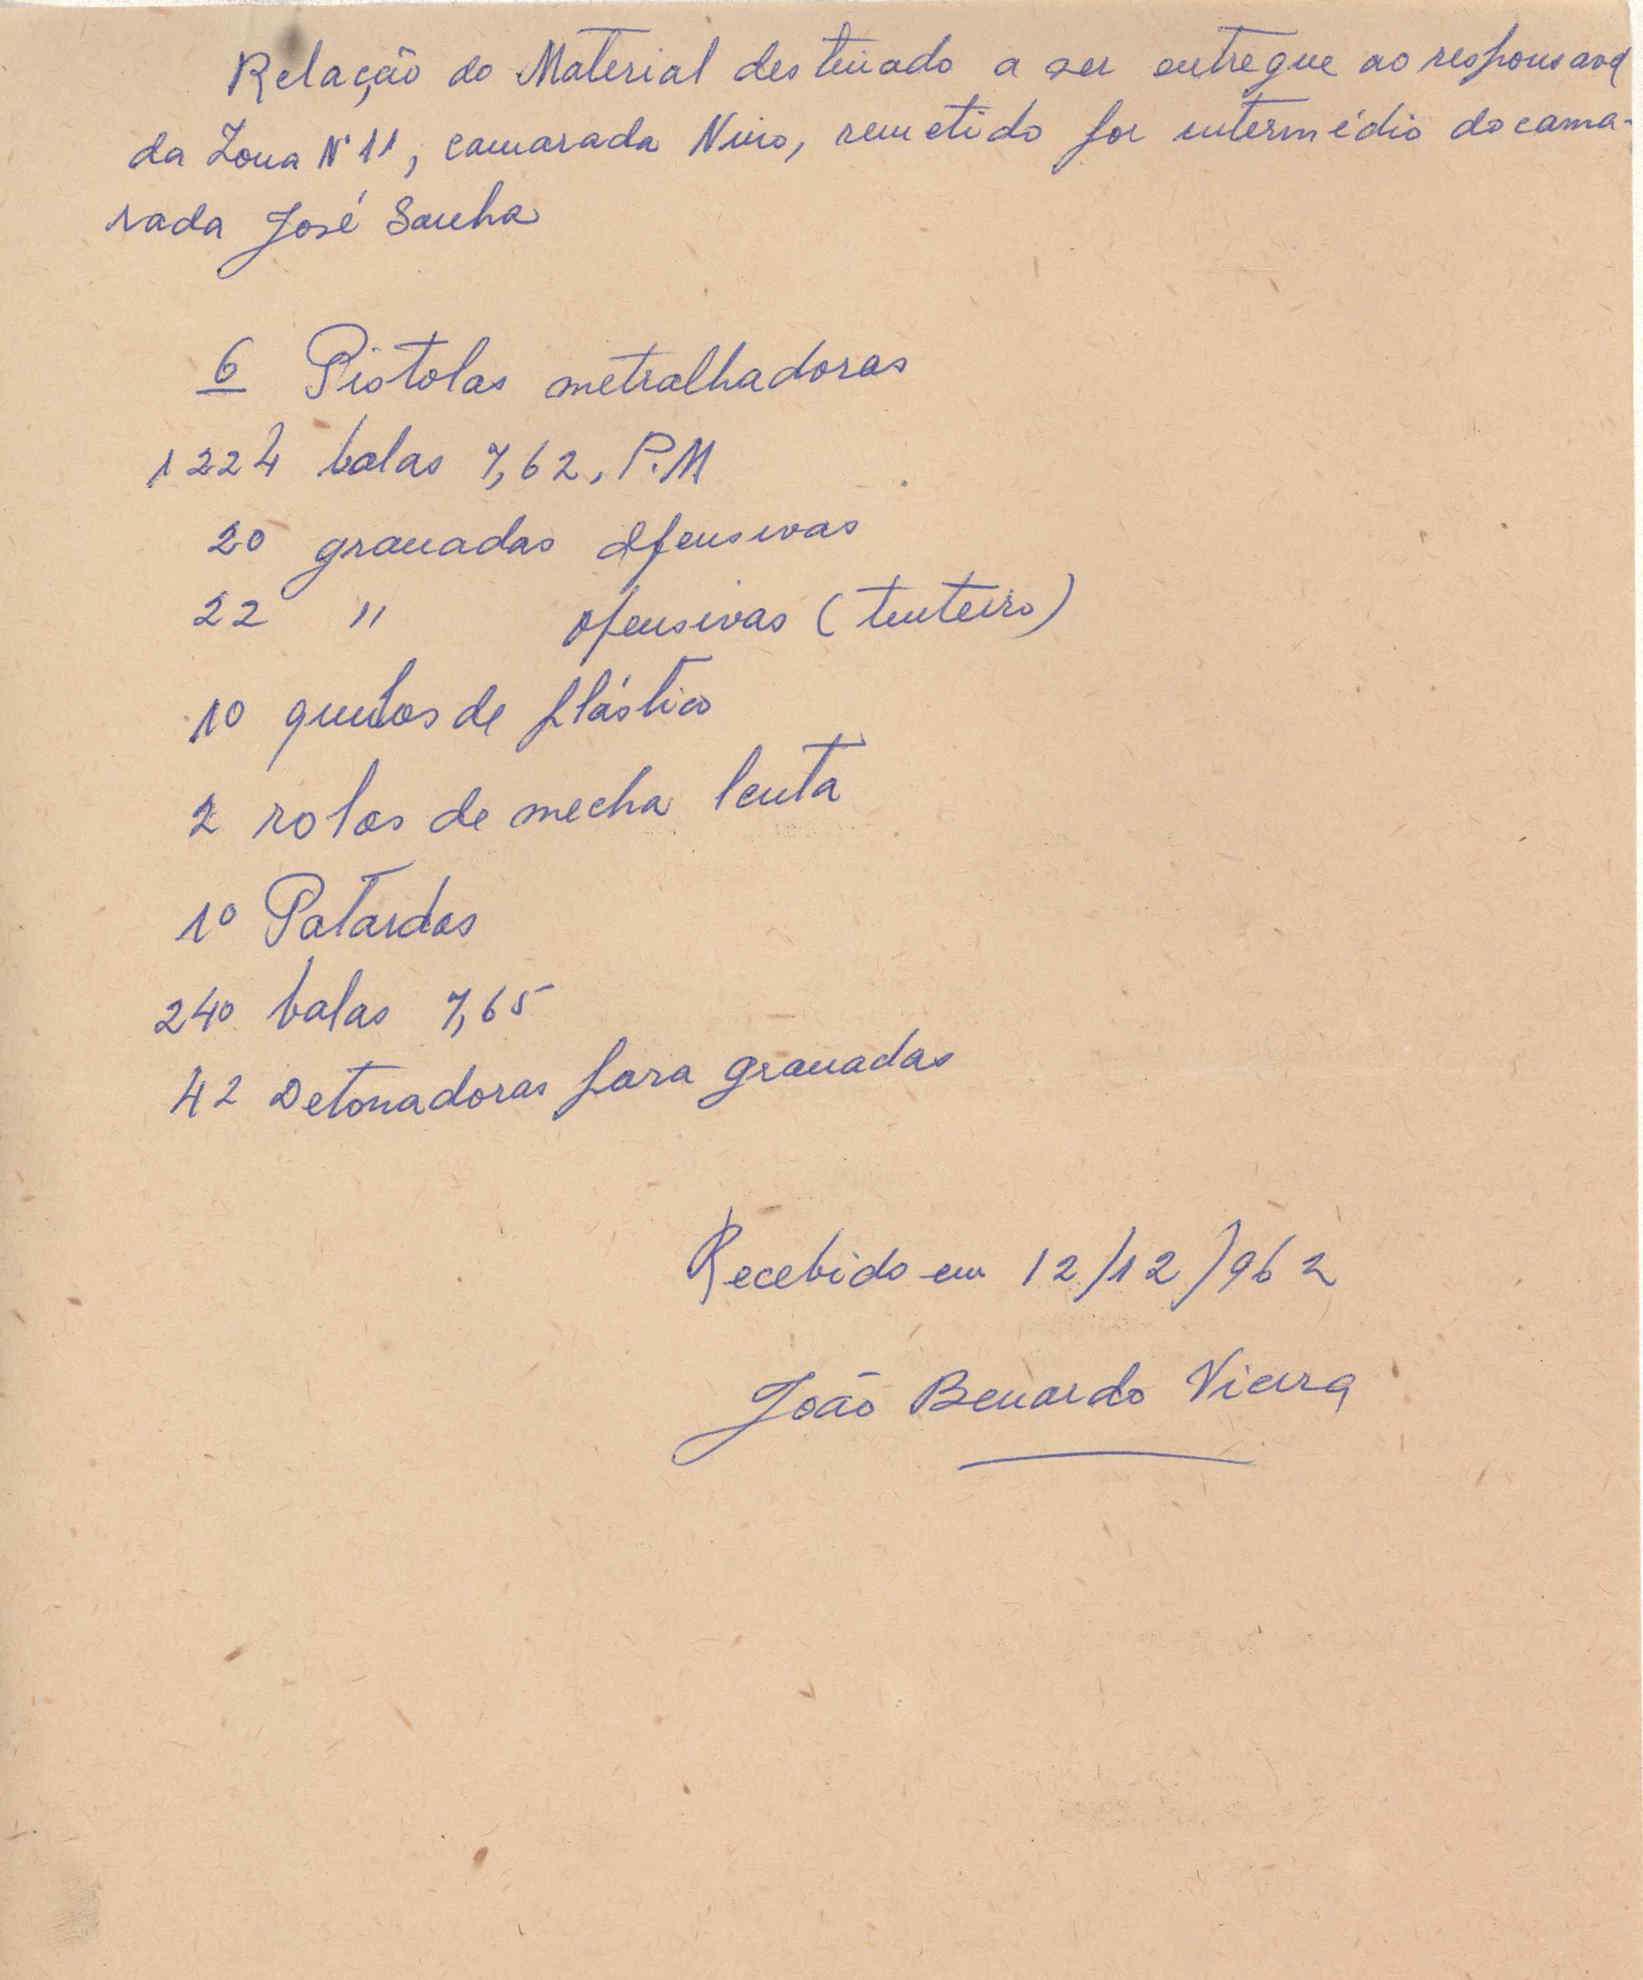 Relação do Material destinado a ser entregue ao responsavel
da Zona Nº 11, camarada Nino, remetido por intermédio do cama-
rada José Sanha
6 Pistolas metralhadoras
1224 balas 7,62, P.M
20 granadas defensivas
22 " ofensivas (tinteiro)
10 quilos de plástico
2 rolos de mecha lenta
10 Patardos
240 balas 7,65
42 Detonadoras para granadas
Recebido em 12/12/962
João Bernardo Vieira